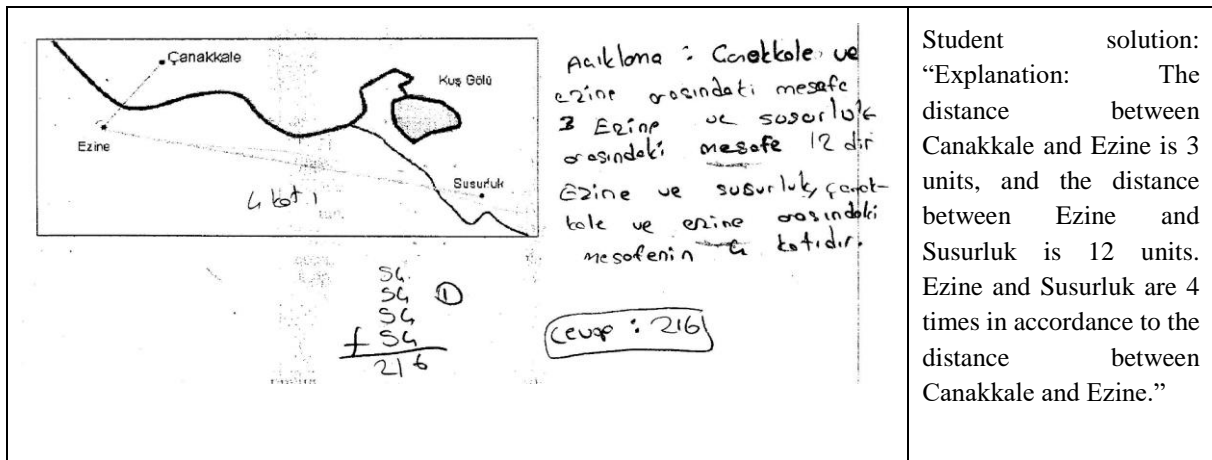 Çanakkale
Kuş Gölü
Ezine
Susurluk
4 katı
Açıklama : Canakkale ve
ezine arasındaki mesafe
3 Ezine ve susurluk
arasındaki mesafe 12 dir
Ezine ve susurluk, çanak-
kale ve ezine arasındaki
mesafenin 4 katıdır.
54
54 1
54
+ 54
216
Cevap : 216
Student solution:
“Explanation: The
distance between
Canakkale and Ezine is 3
units, and the distance
between Ezine and
Susurluk is 12 units.
Ezine and Susurluk are 4
times in accordance to the
distance between
Canakkale and Ezine.”